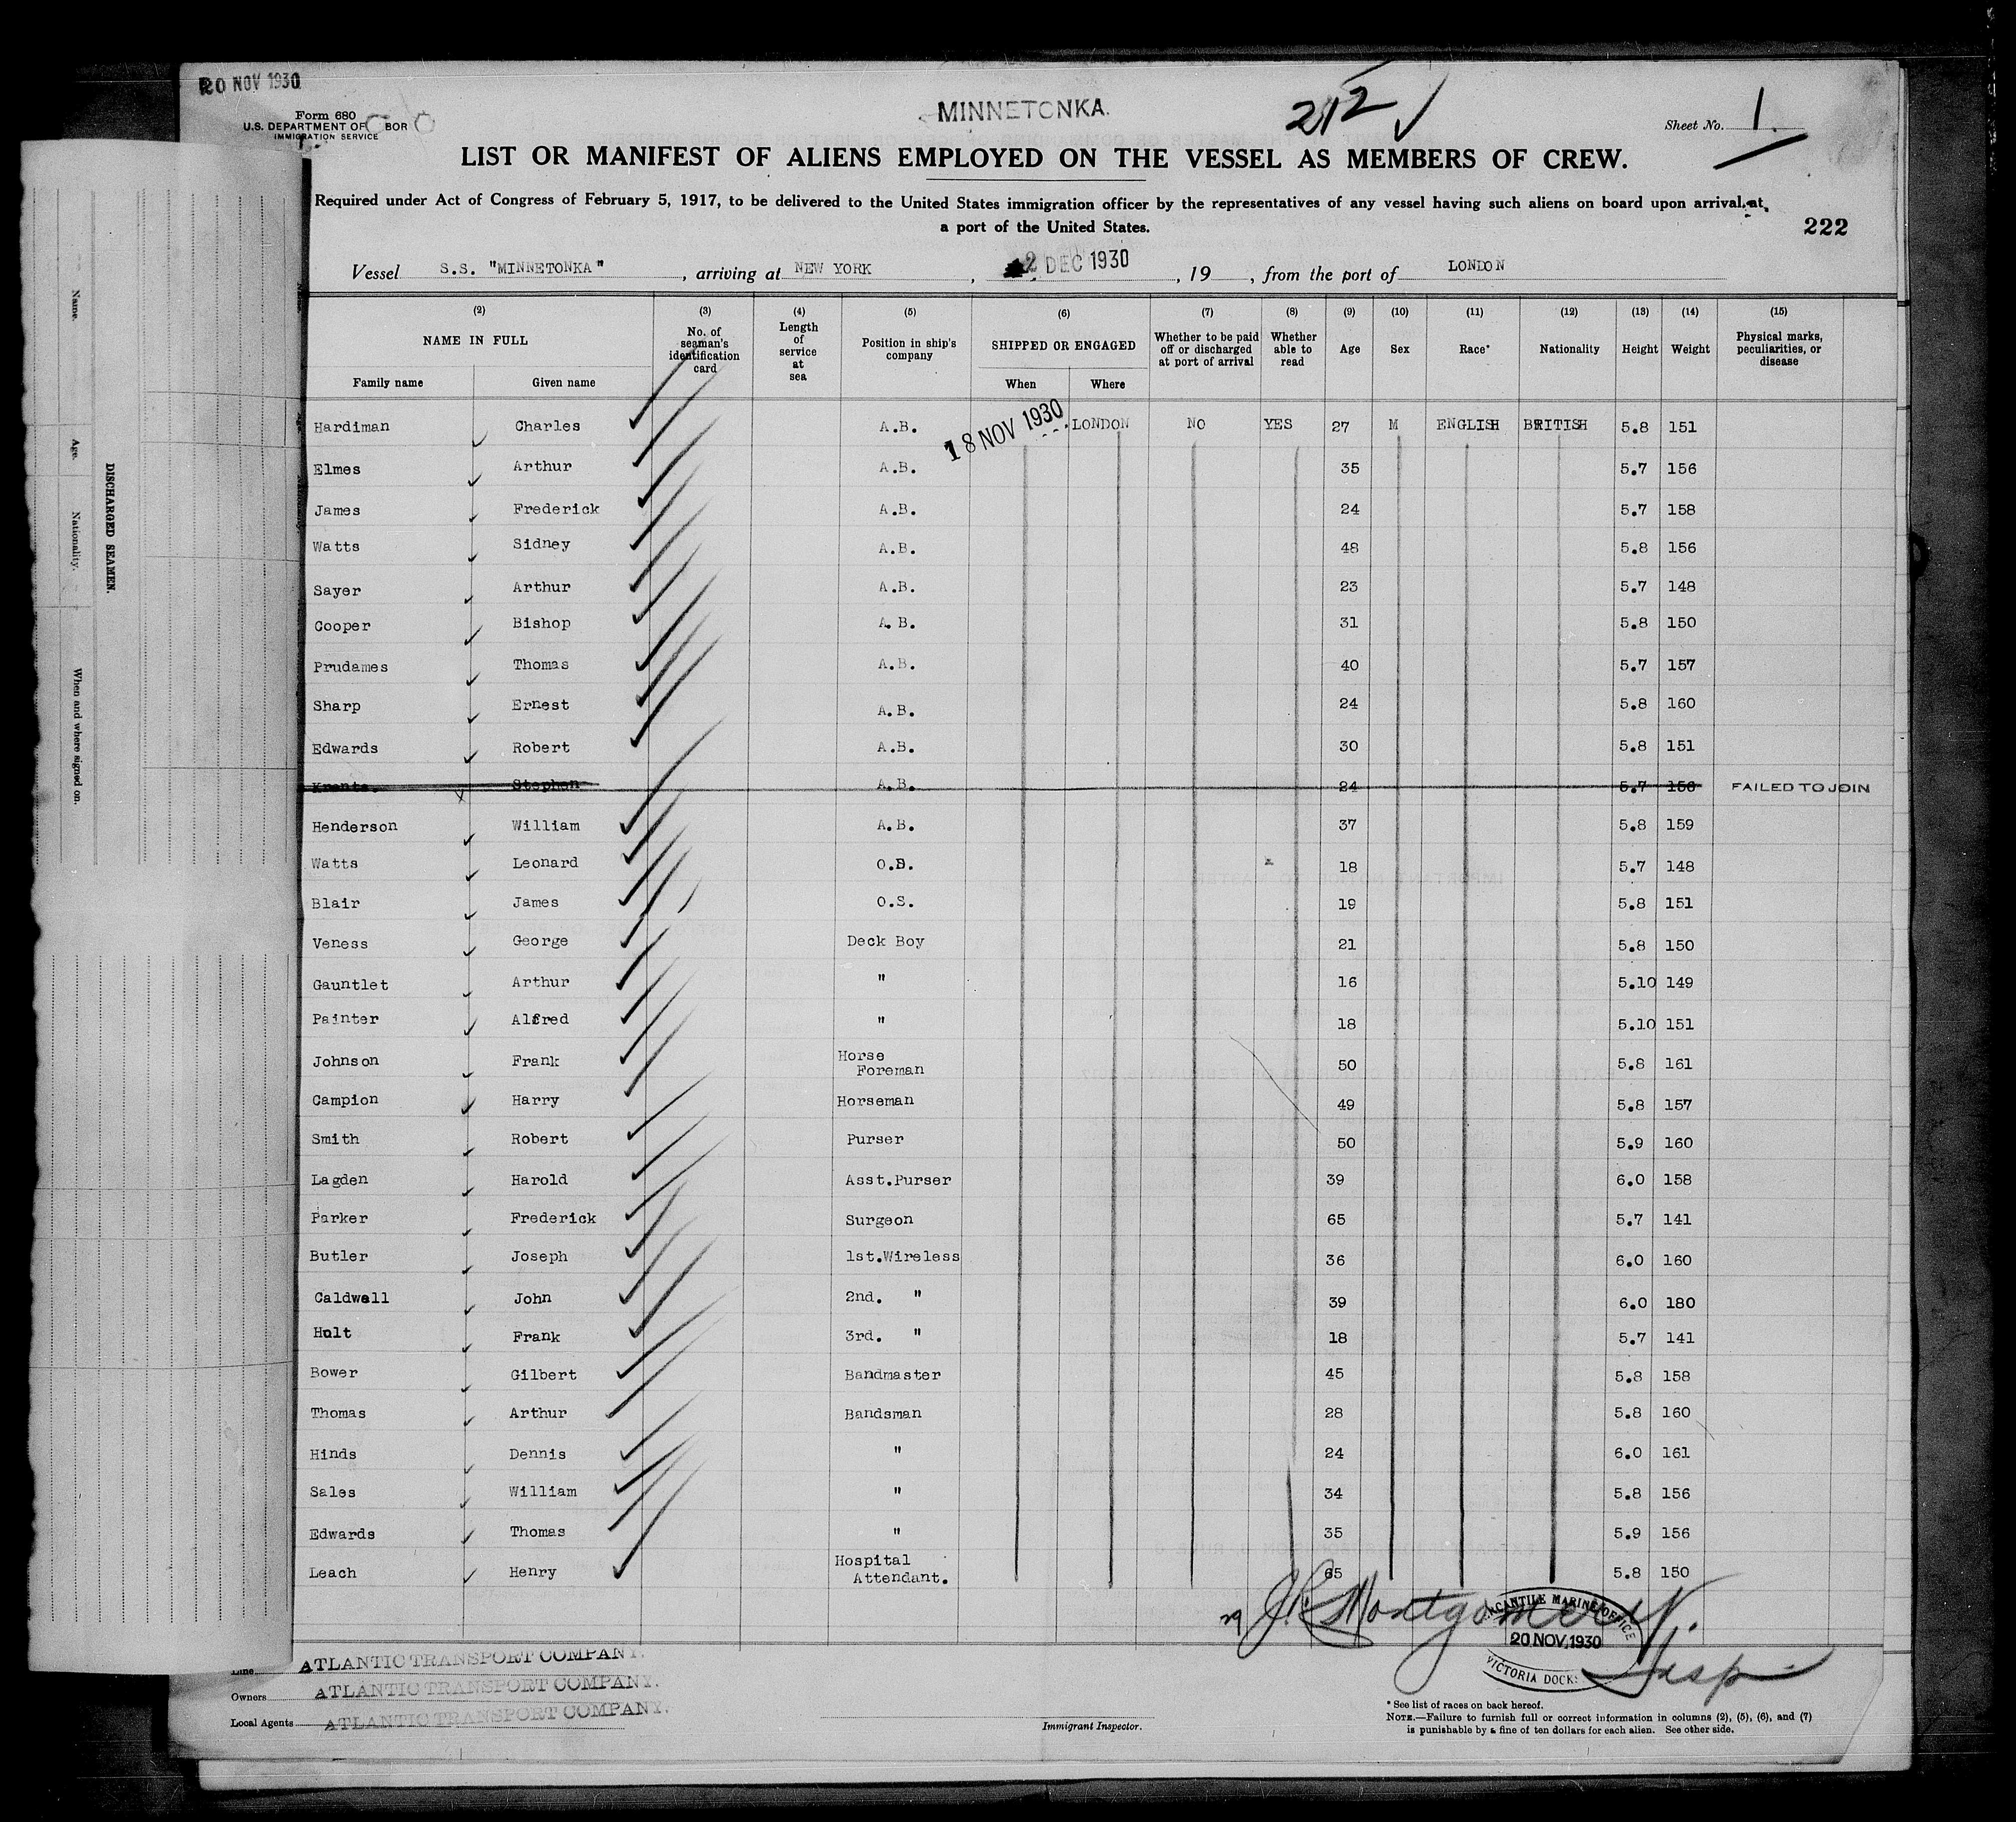 20 NOV 1930
Form 680
U.S. DEPARTMENT OF BOR
IMMIGRATION SERVICE
MINNETONKA.
212
Sheet No. 1
LIST OR MANIFEST OF ALIENS EMPLOYED ON THE VESSEL AS MEMBERS OF CREW.
Required under Act of Congress of February 5, 1917, to be delivered to the United States immigration officer by the representatives of any vessel having such aliens on board upon arrival at
a port of the United States.
222
Vessel S.S. "MINNETONKA", arriving at NEW YORK, 2 DEC 1930, 19, from the port of LONDON
(2) (3) (4) (5) (6) (7) (8) (9) (10) (11) (12) (13) (14) (15)
NAME IN FULL No. of seaman's identification card Length of service at sea Position in ship's company SHIPPED OR ENGAGED Whether to be paid off or discharged at port of arrival Whether able to read Age Sex Race* Nationality Height Weight Physical marks, peculiarities, or disease
Family name Given name When Where
Hardiman Charles A.B. 18 NOV 1930 LONDON NO YES 27 M ENGLISH BRITISH 5.8 151
Elmes Arthur A.B. 35 5.7 156
James Frederick A.B. 24 5.7 158
Watts Sidney A.B. 48 5.8 156
Sayer Arthur A.B. 23 5.7 148
Cooper Bishop A.B. 31 5.8 150
Prudames Thomas A.B. 40 5.7 157
Sharp Ernest A.B. 24 5.8 160
Edwards Robert A.B. 30 5.8 151
Stephen A.B. 24 5.7 FAILED TO JOIN
Henderson William A.B. 37 5.8 159
Watts Leonard 18 5.7 148
Blair James O.S. 19 5.8 151
Veness George Deck Boy 21 5.8 150
Gauntlet Arthur " 16 5.10 149
Painter Alfred " 18 5.10 151
Johnson Frank Horse Foreman 50 5.8 161
Campion Harry Horseman 49 5.8 157
Smith Robert Purser 50 5.9 160
Lagden Harold Asst.Purser 39 6.0 158
Parker Frederick Surgeon 65 5.7 141
Butler Joseph 1st.Wireless 36 6.0 160
Caldwell John 2nd. " 39 6.0 180
Frank 3rd. " 18 5.7 141
Bower Gilbert Bandmaster 45 5.8 158
Thomas Arthur Bandsman 28 5.8 160
Hinds Dennis " 24 6.0 161
Sales William " 34 5.8 156
Edwards Thomas " 35 5.9 156
Leach Henry Hospital Attendant. 65 5.8 150
29 Montgomery.
Insp
MERCANTILE MARINE OFFICE
20 NOV. 1930
VICTORIA DOCK
Line ATLANTIC TRANSPORT COMPANY.
Owners ATLANTIC TRANSPORT COMPANY.
Local Agents ATLANTIC TRANSPORT COMPANY.
Immigrant Inspector.
* See list of races on back hereof.
NOTE.—Failure to furnish full or correct information in columns (2), (5), (6), and (7)
is punishable by a fine of ten dollars for each alien. See other side.
DISCHARGED SEAMEN.
Name.
Age.
Nationality.
When and where signed on.